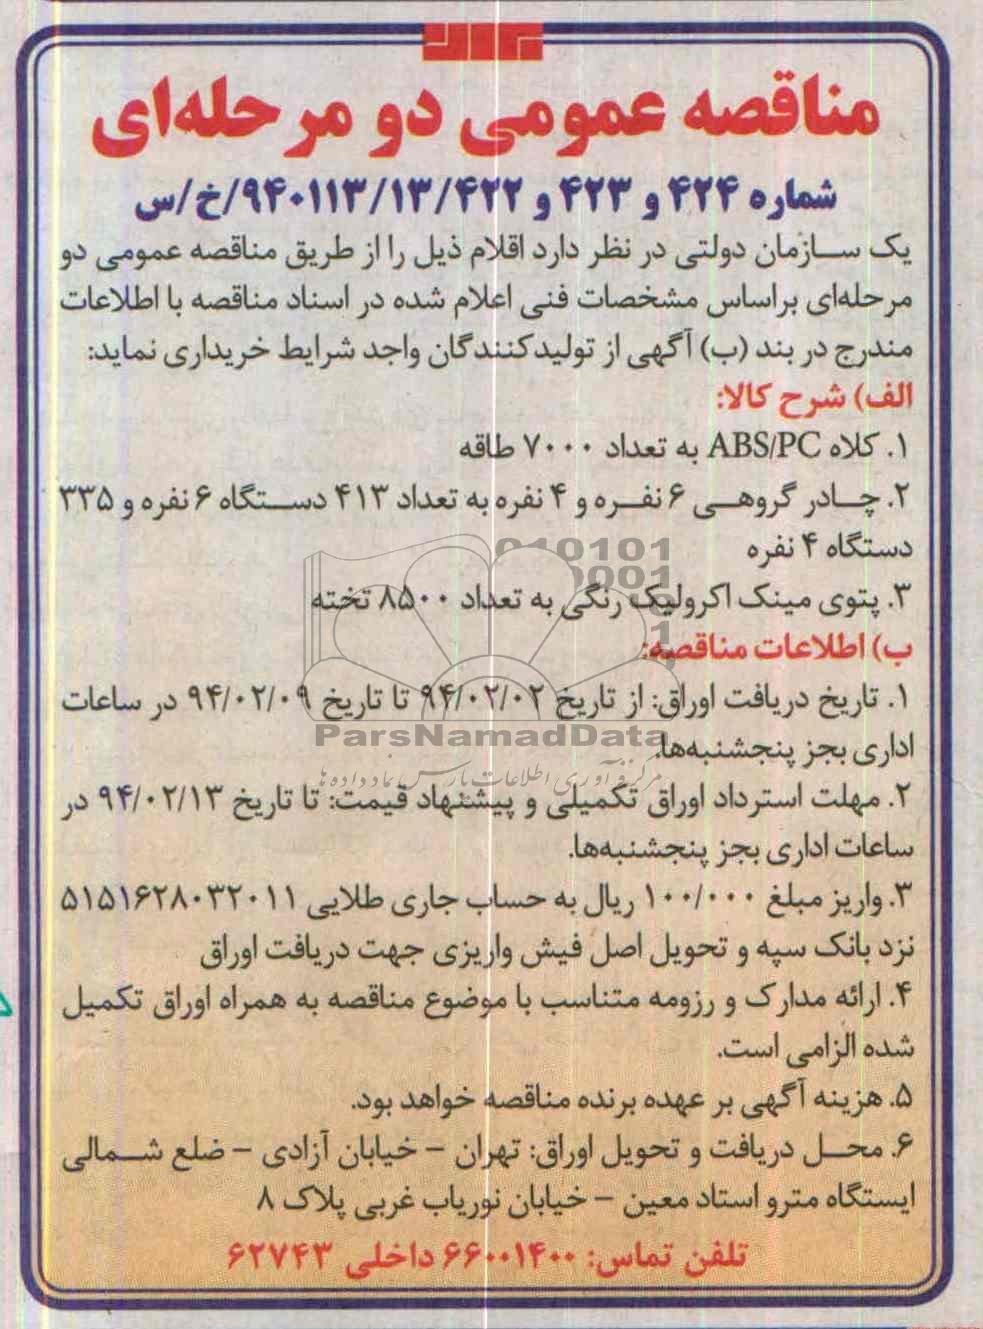 مناقصه عمومی دو مرحله‌ای
شماره ۴۲۴ و ۴۲۳ و ۹۴۰۱۱۳/۱۳/۴۲۲/خ/س
یک سازمان دولتی در نظر دارد اقلام ذیل را از طریق مناقصه عمومی دو
مرحله‌ای براساس مشخصات فنی اعلام شده در اسناد مناقصه با اطلاعات
مندرج در بند (ب) آگهی از تولیدکنندگان واجد شرایط خریداری نماید:
الف) شرح کالا:
۱. کلاه ABS/PC به تعداد ۷۰۰۰ طاقه
۲. چادر گروهی ۶ نفره و ۴ نفره به تعداد ۴۱۳ دستگاه ۶ نفره و ۳۳۵
دستگاه ۴ نفره
۳. پتوی مینک اکرولیک رنگی به تعداد ۸۵۰۰ تخته
ب) اطلاعات مناقصه:
۱. تاریخ دریافت اوراق: از تاریخ ۹۴/۰۲/۰۲ تا تاریخ ۹۴/۰۲/۰۹ در ساعات
اداری بجز پنجشنبه‌ها.
ParsNamadData
مرکز فرآوری اطلاعات پارس نماد داده ها
۲. مهلت استرداد اوراق تکمیلی و پیشنهاد قیمت: تا تاریخ ۹۴/۰۲/۱۳ در
ساعات اداری بجز پنجشنبه‌ها.
۳. واریز مبلغ ۱۰۰/۰۰۰ ریال به حساب جاری طلایی ۵۱۵۱۶۲۸۰۳۲۰۱۱
نزد بانک سپه و تحویل اصل فیش واریزی جهت دریافت اوراق
۴. ارائه مدارک و رزومه متناسب با موضوع مناقصه به همراه اوراق تکمیل
شده الزامی است.
۵. هزینه آگهی بر عهده برنده مناقصه خواهد بود.
۶. محل دریافت و تحویل اوراق: تهران – خیابان آزادی – ضلع شمالی
ایستگاه مترو استاد معین – خیابان نوریاب غربی پلاک ۸
تلفن تماس: ۶۶۰۰۱۴۰۰ داخلی ۶۲۷۴۳